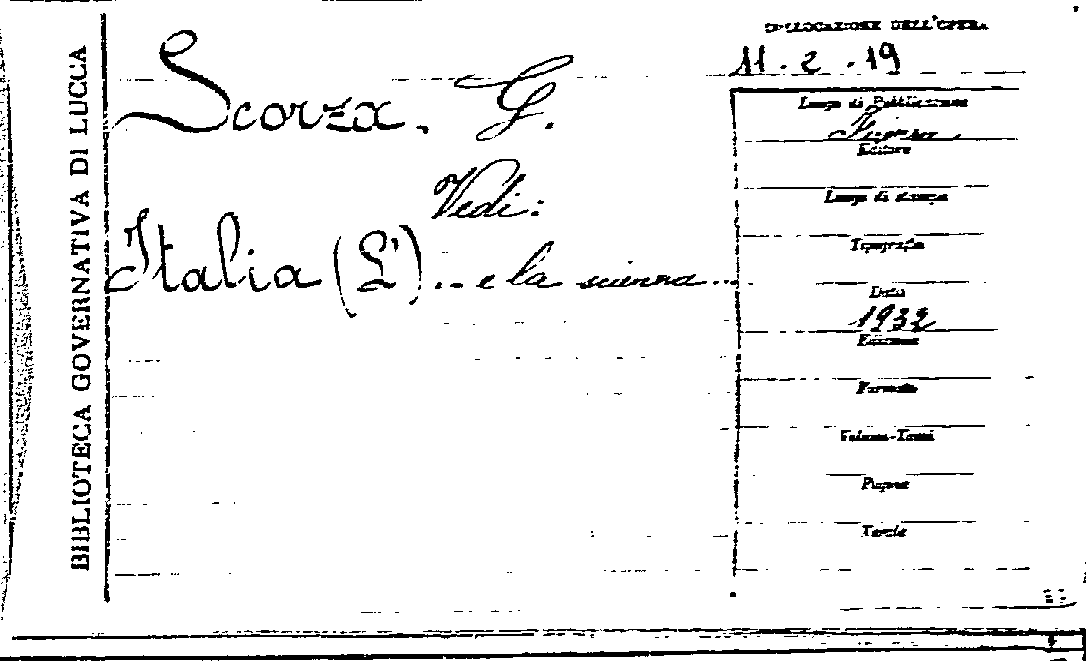 BIBLIOTECA GOVERNATIVA DI LUCCA
Scorza, G.
Vedi:
Italia (L') ... e la scienza ...
COLLOCAZIONE DELL'OPERA
11 - 2 - 19
Luogo di Pubblicazione
Firenze
Editore
Luogo di stampa
Tipografia
Data
1932
Edizione
Formato
Volume-Tomi
Pagine
Tavole